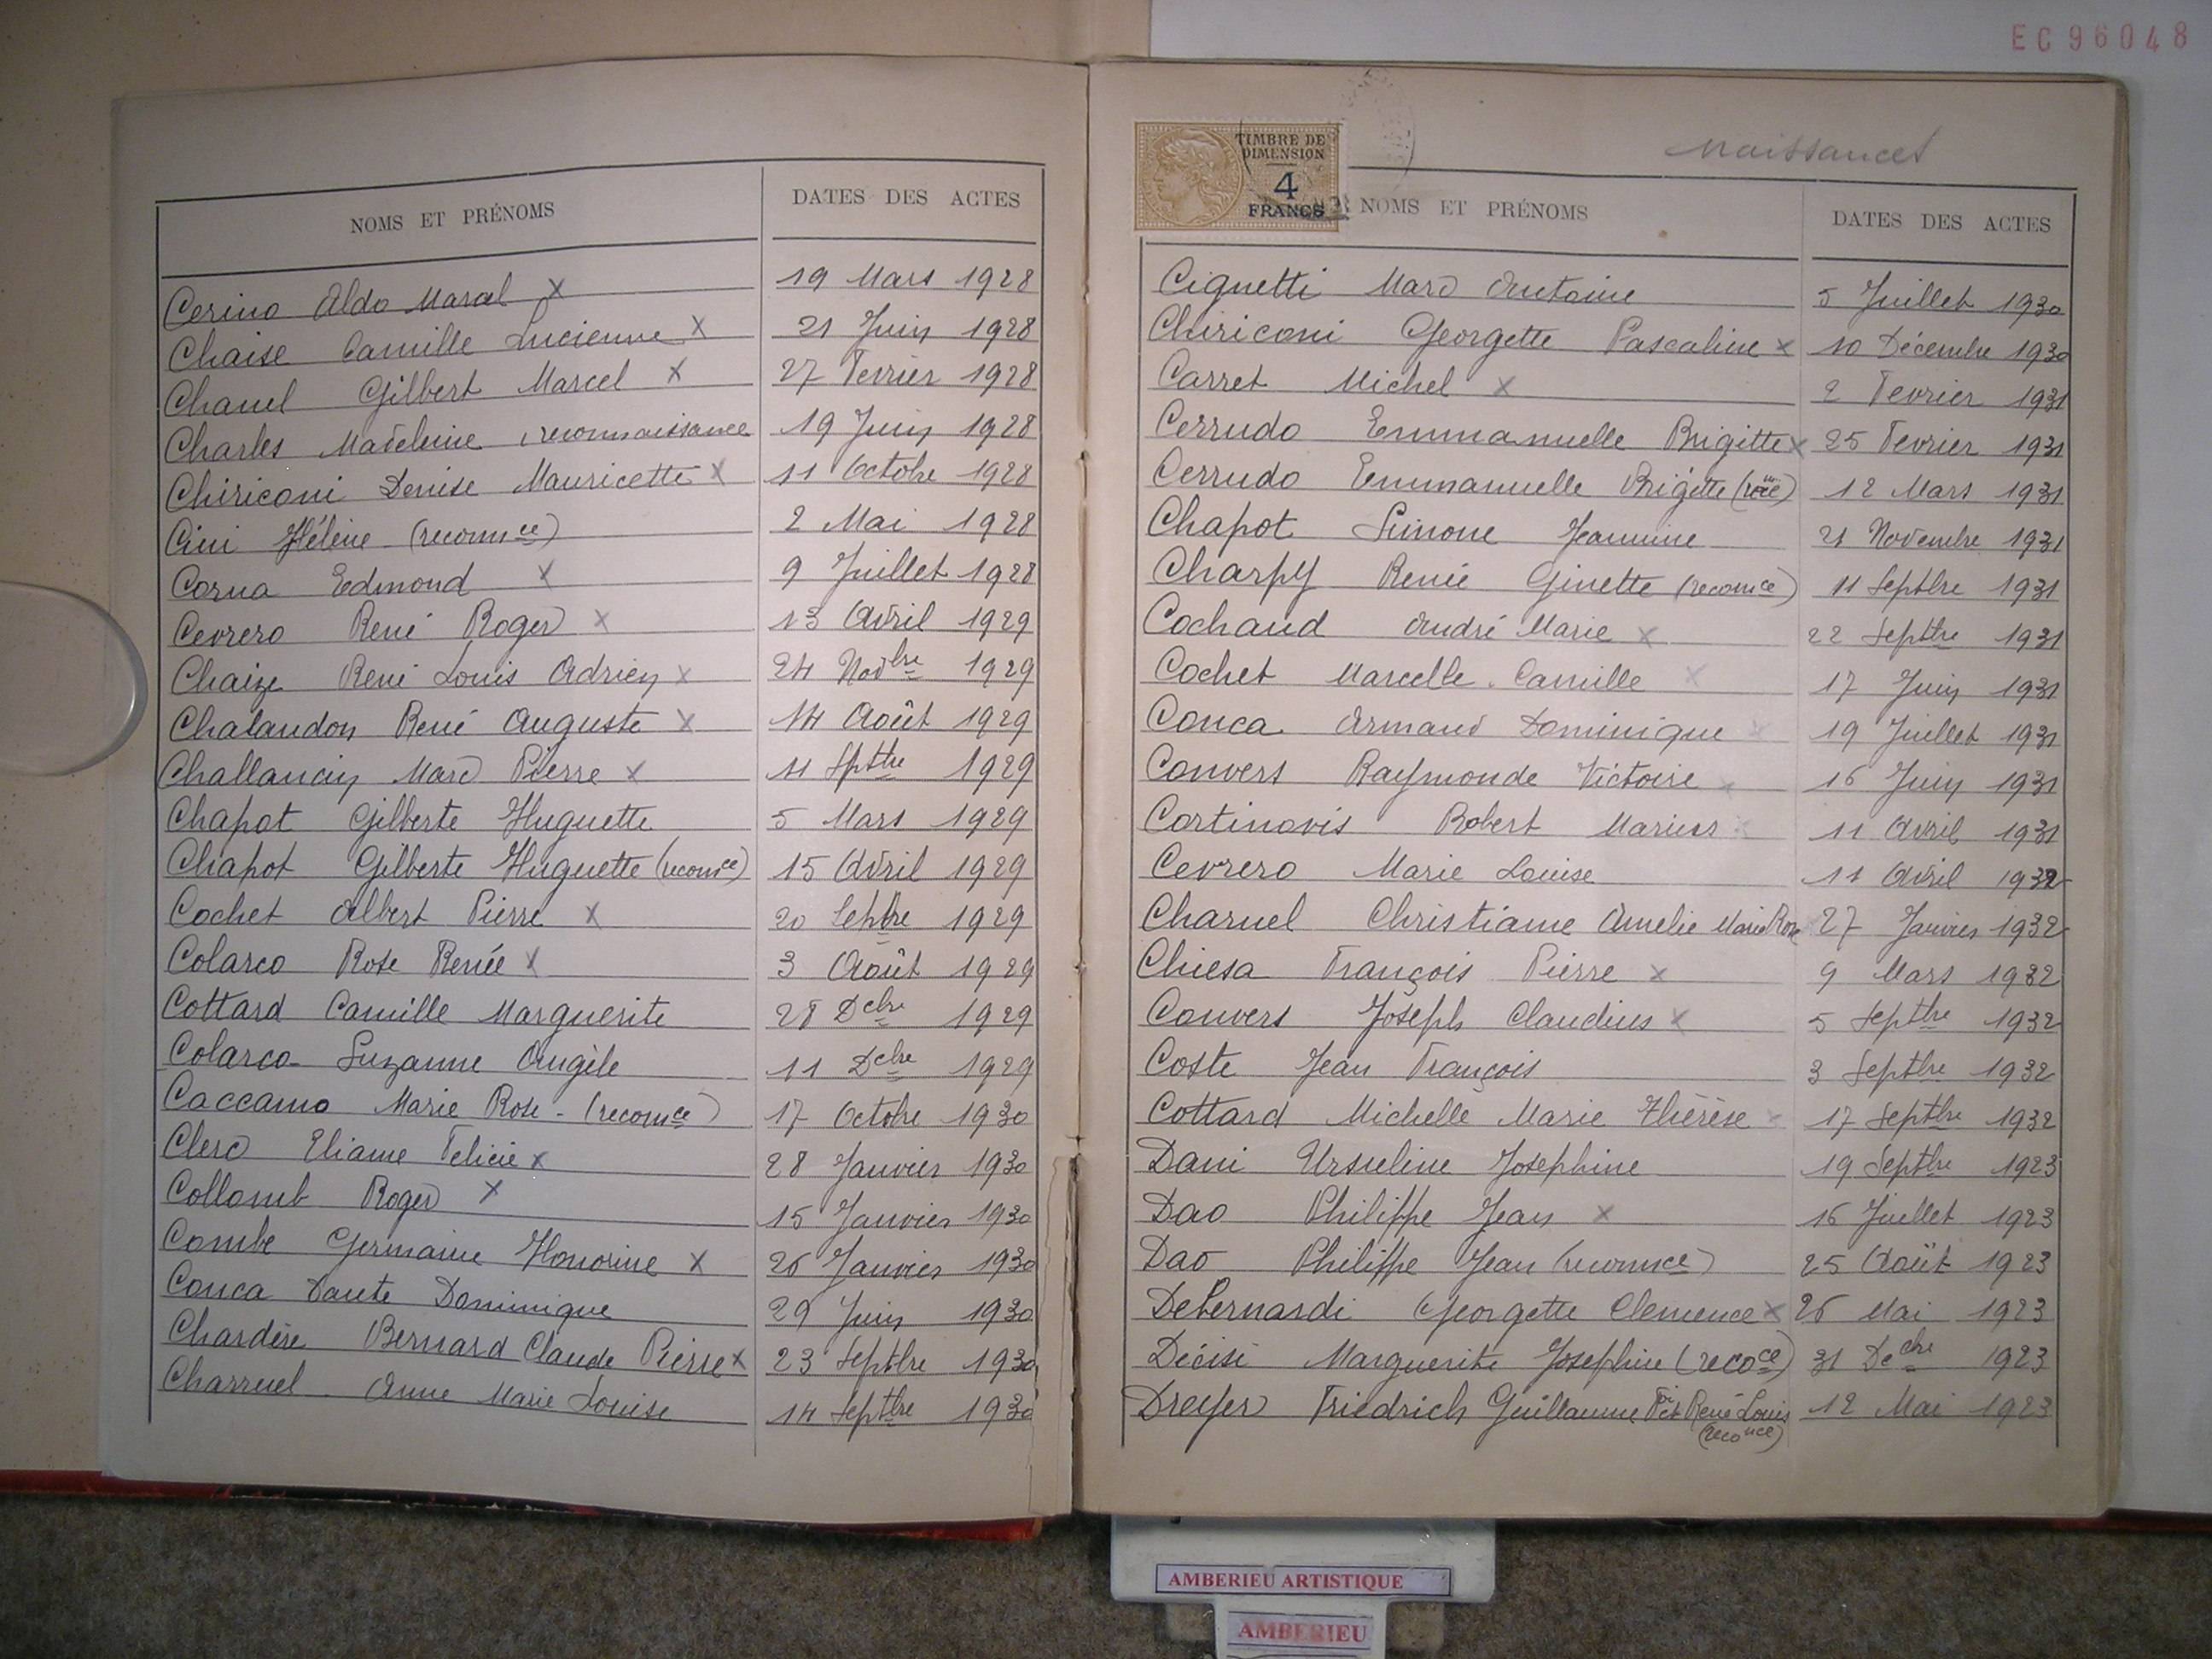 EC96048
NOMS ET PRÉNOMS DATES DES ACTES
Cerino Aldo Marcel x 19 Mars 1928
Chaise Camille Lucienne x 21 Juin 1928
Chanel Gilbert Marcel x 27 Fevrier 1928
Charles Madeleine reconnaissance 19 Juin 1928
Chiriconi Denise Mauricette x 11 Octobre 1928
Cini Hélène (reconnce) 2 Mai 1928
Corna Edmond x 9 Juillet 1928
Cevrero René Roger x 13 Avril 1929
Chaize René Louis Adrien x 24 Novbre 1929
Chalandon René Auguste x 14 Août 1929
Challancin Marc Pierre x 11 Sptbre 1929
Chapot Gilberte Huguette 5 Mars 1929
Chapot Gilberte Huguette (reconce) 15 Avril 1929
Cochet Albert Pierre x 20 Septbre 1929
Colarco Rose Renée x 3 Août 1929
Cottard Camille Marguerite 28 Dcbre 1929
Colarco Suzanne Angèle 11 Dcbre 1929
Caccamo Marie Rose - (reconce) 17 Octobre 1930
Clerc Eliane Felicie x 28 Janvier 1930
Collomb Roger x 15 Janvier 1930
Combe Germaine Honorine x 26 Janvier 1930
Conca Dante Dominique 29 Juin 1930
Chardère Bernard Claude Pierre x 23 Septbre 1930
Charruel Anne Marie Louise 14 Septbre 1930
Naissances
TIMBRE DE
DIMENSION
4
FRANCS
NOMS ET PRÉNOMS DATES DES ACTES
Cignetti Marc Antoine 5 Juillet 1930
Chiriconi Georgette Pascaline x 10 Décembre 1930
Carret Michel x 2 Fevrier 1931
Cerrudo Emmanuelle Brigitte x 25 Fevrier 1931
Cerrudo Emmanuelle Brigitte 12 Mars 1931
Chapot Simone Jeannine 21 Novembre 1931
Charpy Renée Ginette (reconce) 11 Septbre 1931
Cochaud André Marie x 22 Septbre 1931
Cochet Marcelle Camille x 17 Juin 1931
Conca Armand Dominique x 19 Juillet 1931
Convers Raymonde Victoire x 16 Juin 1931
Cortinovis Robert Marius x 11 Avril 1931
Cevrero Marie Louise 11 Avril 1932
Charuel Christiane Amelie Marie Rose 27 Janvier 1932
Chiesa François Pierre x 9 Mars 1932
Convers Joseph Claudius x 5 Septbre 1932
Coste Jean François 3 Septbre 1932
Cottard Michelle Marie Thérèse x 17 Septbre 1932
Dani Ursuline Josephine 19 Septbre 1923
Dao Philippe Jean x 16 Juillet 1923
Dao Philippe Jean (reconnce) 25 Août 1923
DeBernardi Georgette Clemence x 26 Mai 1923
Décisi Marguerite Josephine (recoce) 31 Decbre 1923
Dreyer Friedrich Guillaume René Louis 12 Mai 1923
(reconce)
AMBERIEU ARTISTIQUE
AMBERIEU